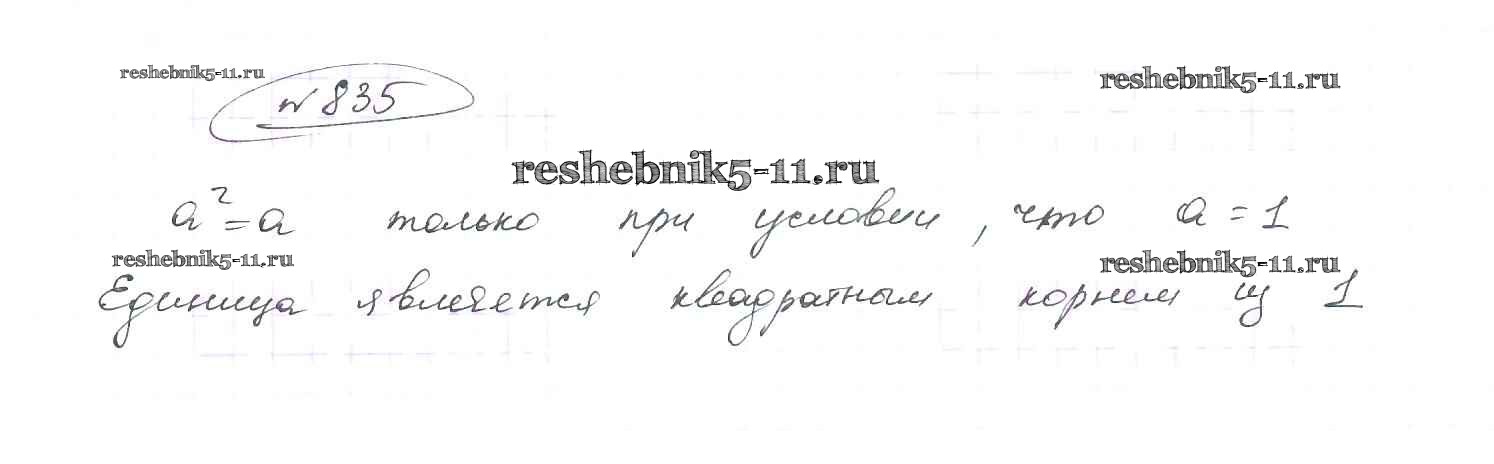 reshebnik5-11.ru
№ 835
reshebnik5-11.ru
reshebnik5-11.ru
a² = a только при условии, что a = 1
reshebnik5-11.ru
reshebnik5-11.ru
Единица является квадратным корнем из 1